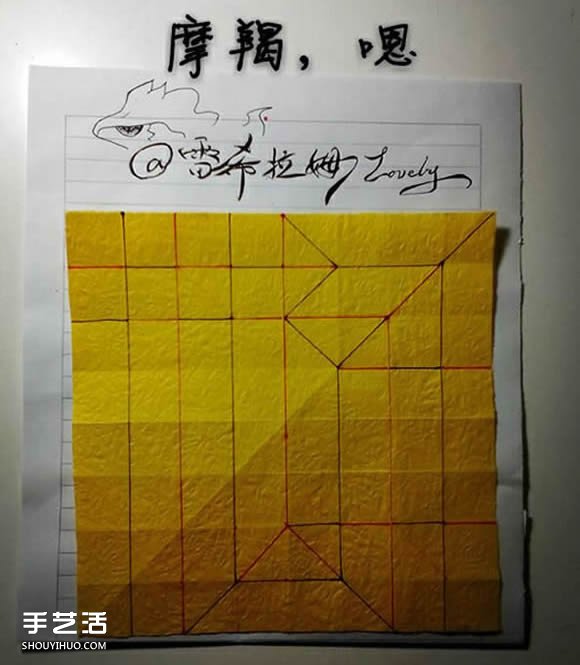 摩羯，嗯
@雷希拉姆 Lovely
手艺活
SHOUYIHUO.COM